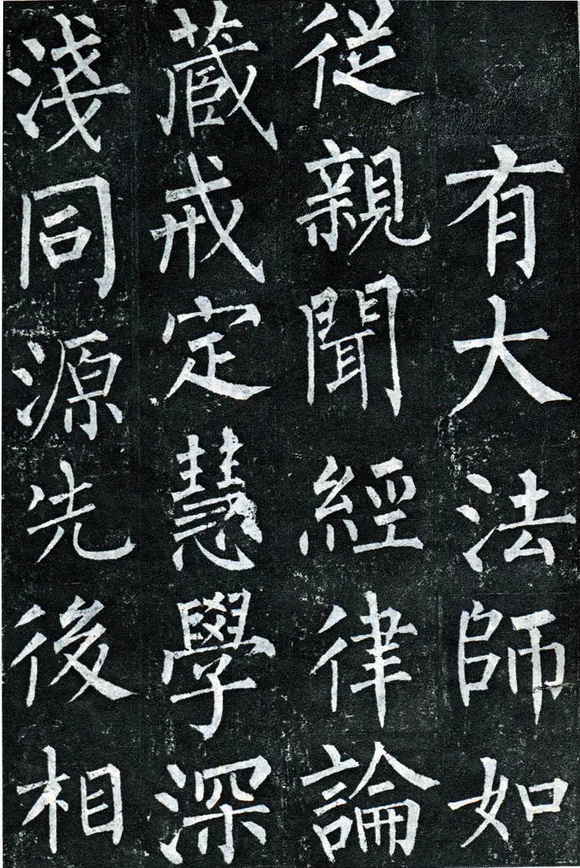 有大法師如
從親聞經律論
蔵戒定慧學深
淺同源先後相